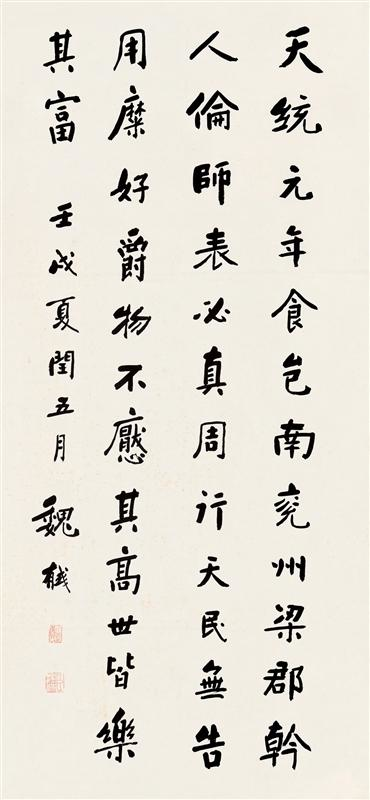 天統元年食邑南兖州梁郡幹
人倫師表必真周行天民無告
用麋好爵物不懕其高世皆樂
其富
壬戌夏閏五月
魏棫